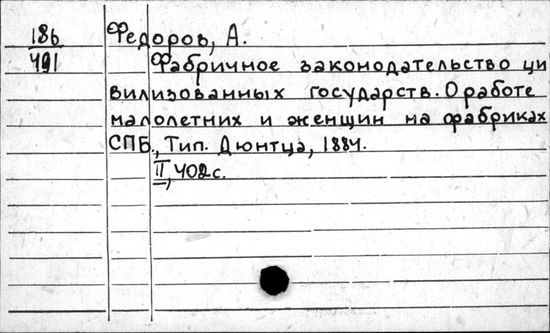 186 Федоров, А.
491 Фабричное законодательство ци
вилизованных государств. О работе
малолетних и женщин на фабриках
СПБ., Тип. Дюнтца, 1884.
II, 402с.